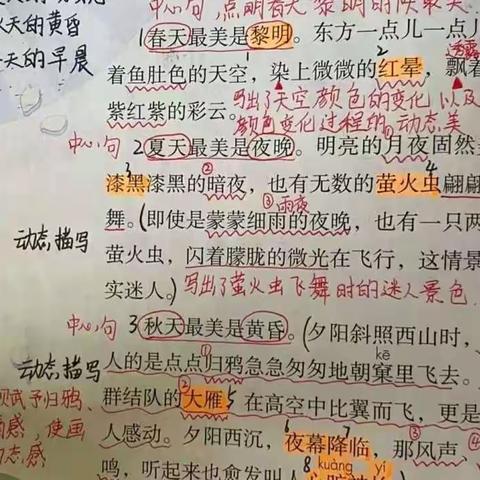 中心句,点明春天黎明的
天的黄昏
天的早晨
1春天最美是黎明。东方一点儿一点儿
2
透露
着鱼肚色的天空,染上微微的红晕,飘着
紫红紫的彩云。写出了天空颜色的变化以及
颜色变化过程的动态美
中心句 2夏天最美是夜晚。明亮的月夜固然
① ② 3 4
漆黑漆黑的暗夜,也有无数的萤火虫翩翩
③雨夜
舞。(即使是蒙蒙细雨的夜晚,也有一只两
动态描写 萤火虫,闪着朦胧的微光在飞行,这情景
实迷人。)写出了萤火虫飞舞时的迷人景色
中心句 3秋天最美是黄昏。(夕阳斜照西山时,
kē
动态描写 人的是点点①归鸦急急匆匆地朝窠里飞去。
赋予归鸦、 群结队的②大雁5在高空中比翼而飞,更是
感,使画 人感动。夕阳西沉,6夜幕降临7,那风声③、④
动态感 8 kuàng yí
鸣,听起来也愈发叫人心旷